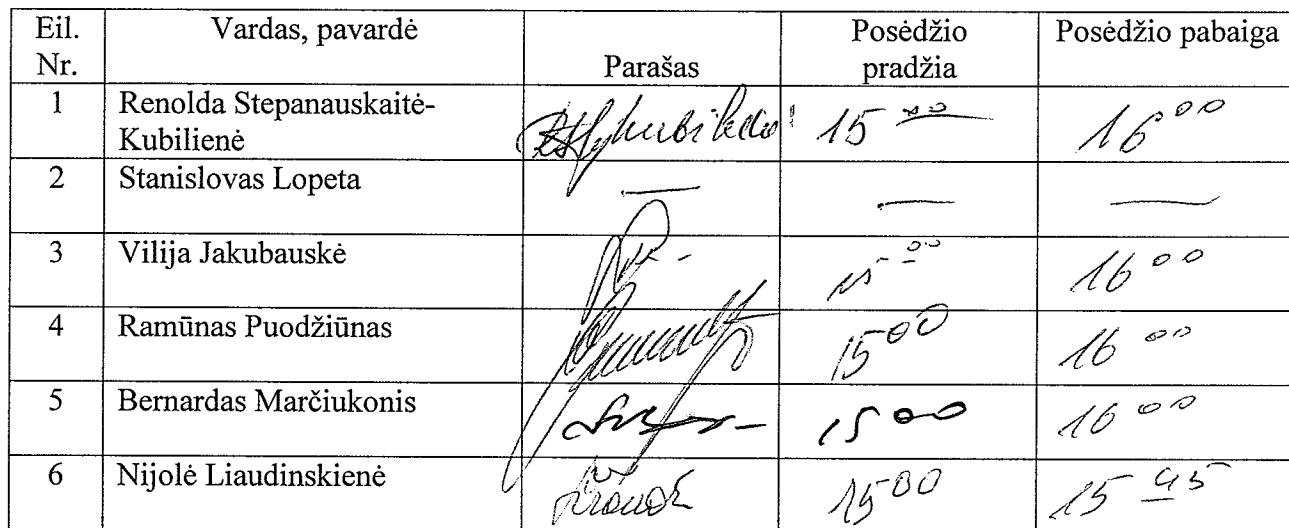 Eil. Nr. Vardas, pavardė Parašas Posėdžio pradžia Posėdžio pabaiga
1 Renolda Stepanauskaitė-Kubilienė 15 00 16 00
2 Stanislovas Lopeta — — —
3 Vilija Jakubauskė 15 00 16 00
4 Ramūnas Puodžiūnas 15 00 16 00
5 Bernardas Marčiukonis 15 00 16 00
6 Nijolė Liaudinskienė 15 00 15 45